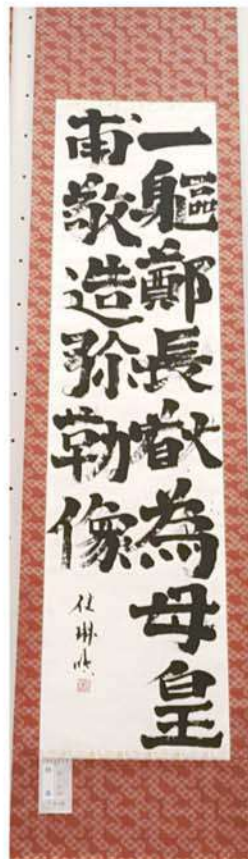 一軀鄭長猷為母皇
甫敬造弥勒像